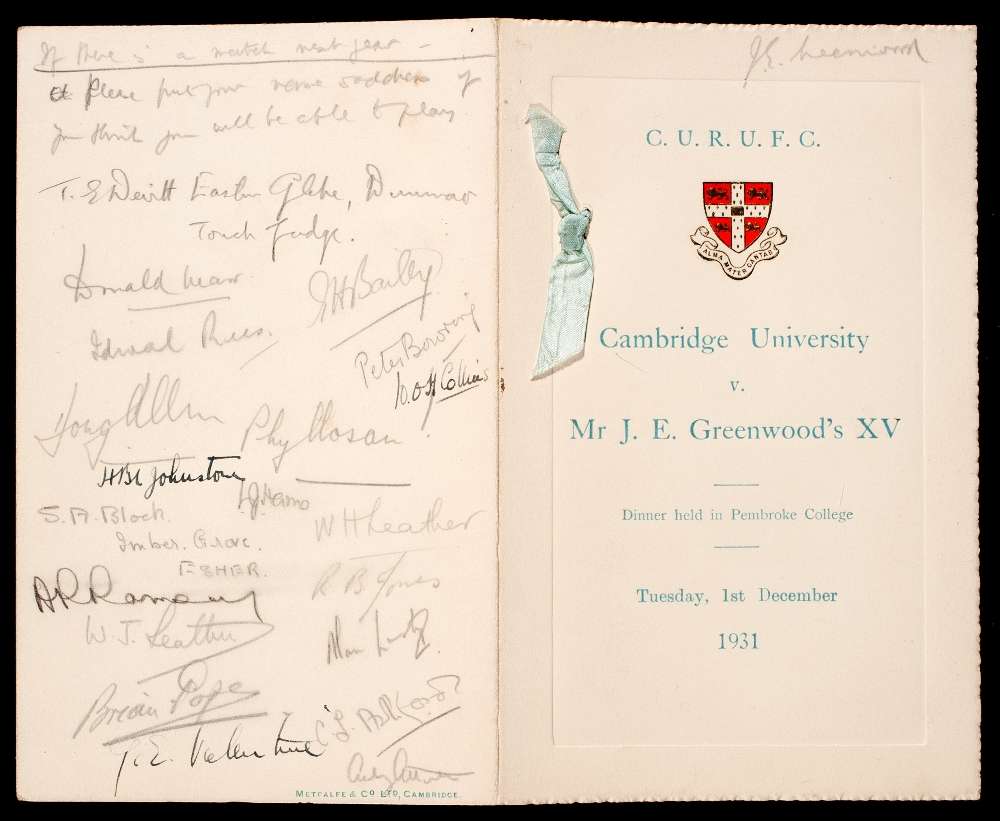 If there is a match next year -
Please put your name & address if
you think you will be able to play.
T. E Devitt Easton Glebe, Dunmow
Touch Judge.
Donald
G H Bailey
Idwal Rees.
Peter Bowring
W.O.H Collins
Doug Allen
Phyllosan
H B L Johnstone
S. A. Block.
Imber. Grove.
ESHER.
W H Leather
R B Jones
A R Ramsay
W. J. Leather
Brian Pope
T. E. Valentine
C L Ashford
METCALFE & CO LTD, CAMBRIDGE.
J. E. Greenwood
C. U. R. U. F. C.
ALMA MATER CANTAB
Cambridge University
v.
Mr J. E. Greenwood's XV
Dinner held in Pembroke College
Tuesday, 1st December
1931